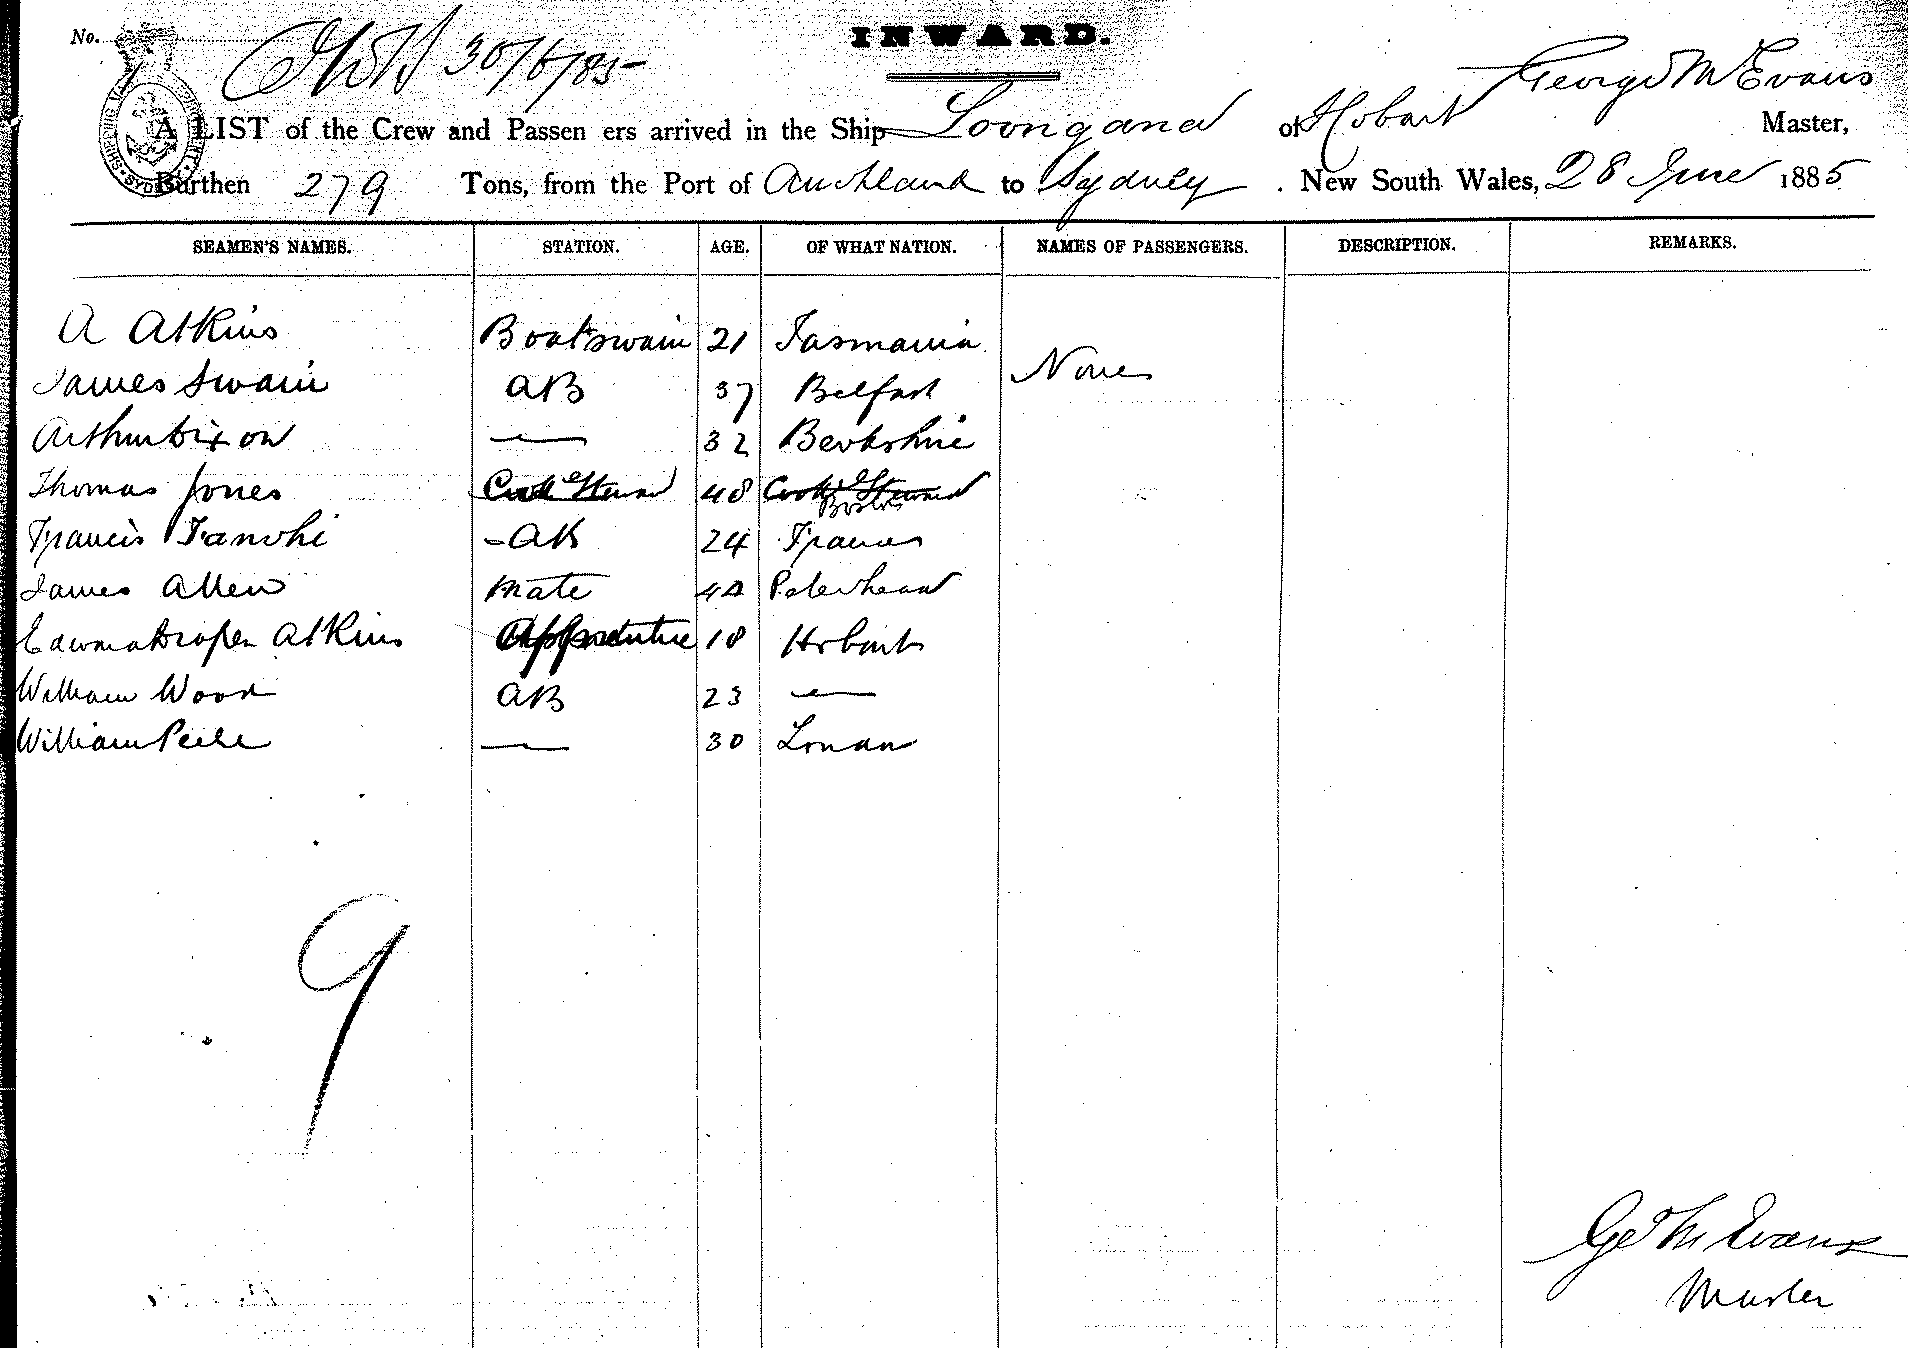 No.
30/6/85
INWARD.
George M Evans
A LIST of the Crew and Passen ers arrived in the Ship Loongana of Hobart Master,
Burthen 279 Tons, from the Port of Auckland to Sydney . New South Wales, 28 June 1885
SEAMEN'S NAMES. STATION. AGE. OF WHAT NATION. NAMES OF PASSENGERS. DESCRIPTION. REMARKS.
A Atkins Boatswain 21 Tasmania
James Swain AB 37 Belfast None
Arthur Dixon — 32 Berkshire
Thomas Jones Cook & Steward 48 Cook & Steward
Boston
Francis AB 24 France
James Allen Mate 40 Peterhead
Edward Draper Atkins Apprentice 18 Hobart
William Wood AB 23 —
William Peele — 30 London
9
Geo M Evans
Master